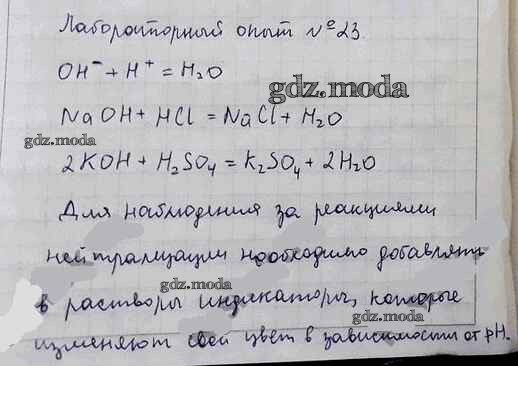 Лабораторный опыт №23.
OH⁻ + H⁺ = H₂O
gdz.moda
NaOH + HCl = NaCl + H₂O
gdz.moda
2KOH + H₂SO₄ = K₂SO₄ + 2H₂O
Для наблюдения за реакциями
gdz.moda
нейтрализации необходимо добавлять
gdz.moda
в растворы индикаторы, которые
gdz.moda
изменяют свой цвет в зависимости от pH.